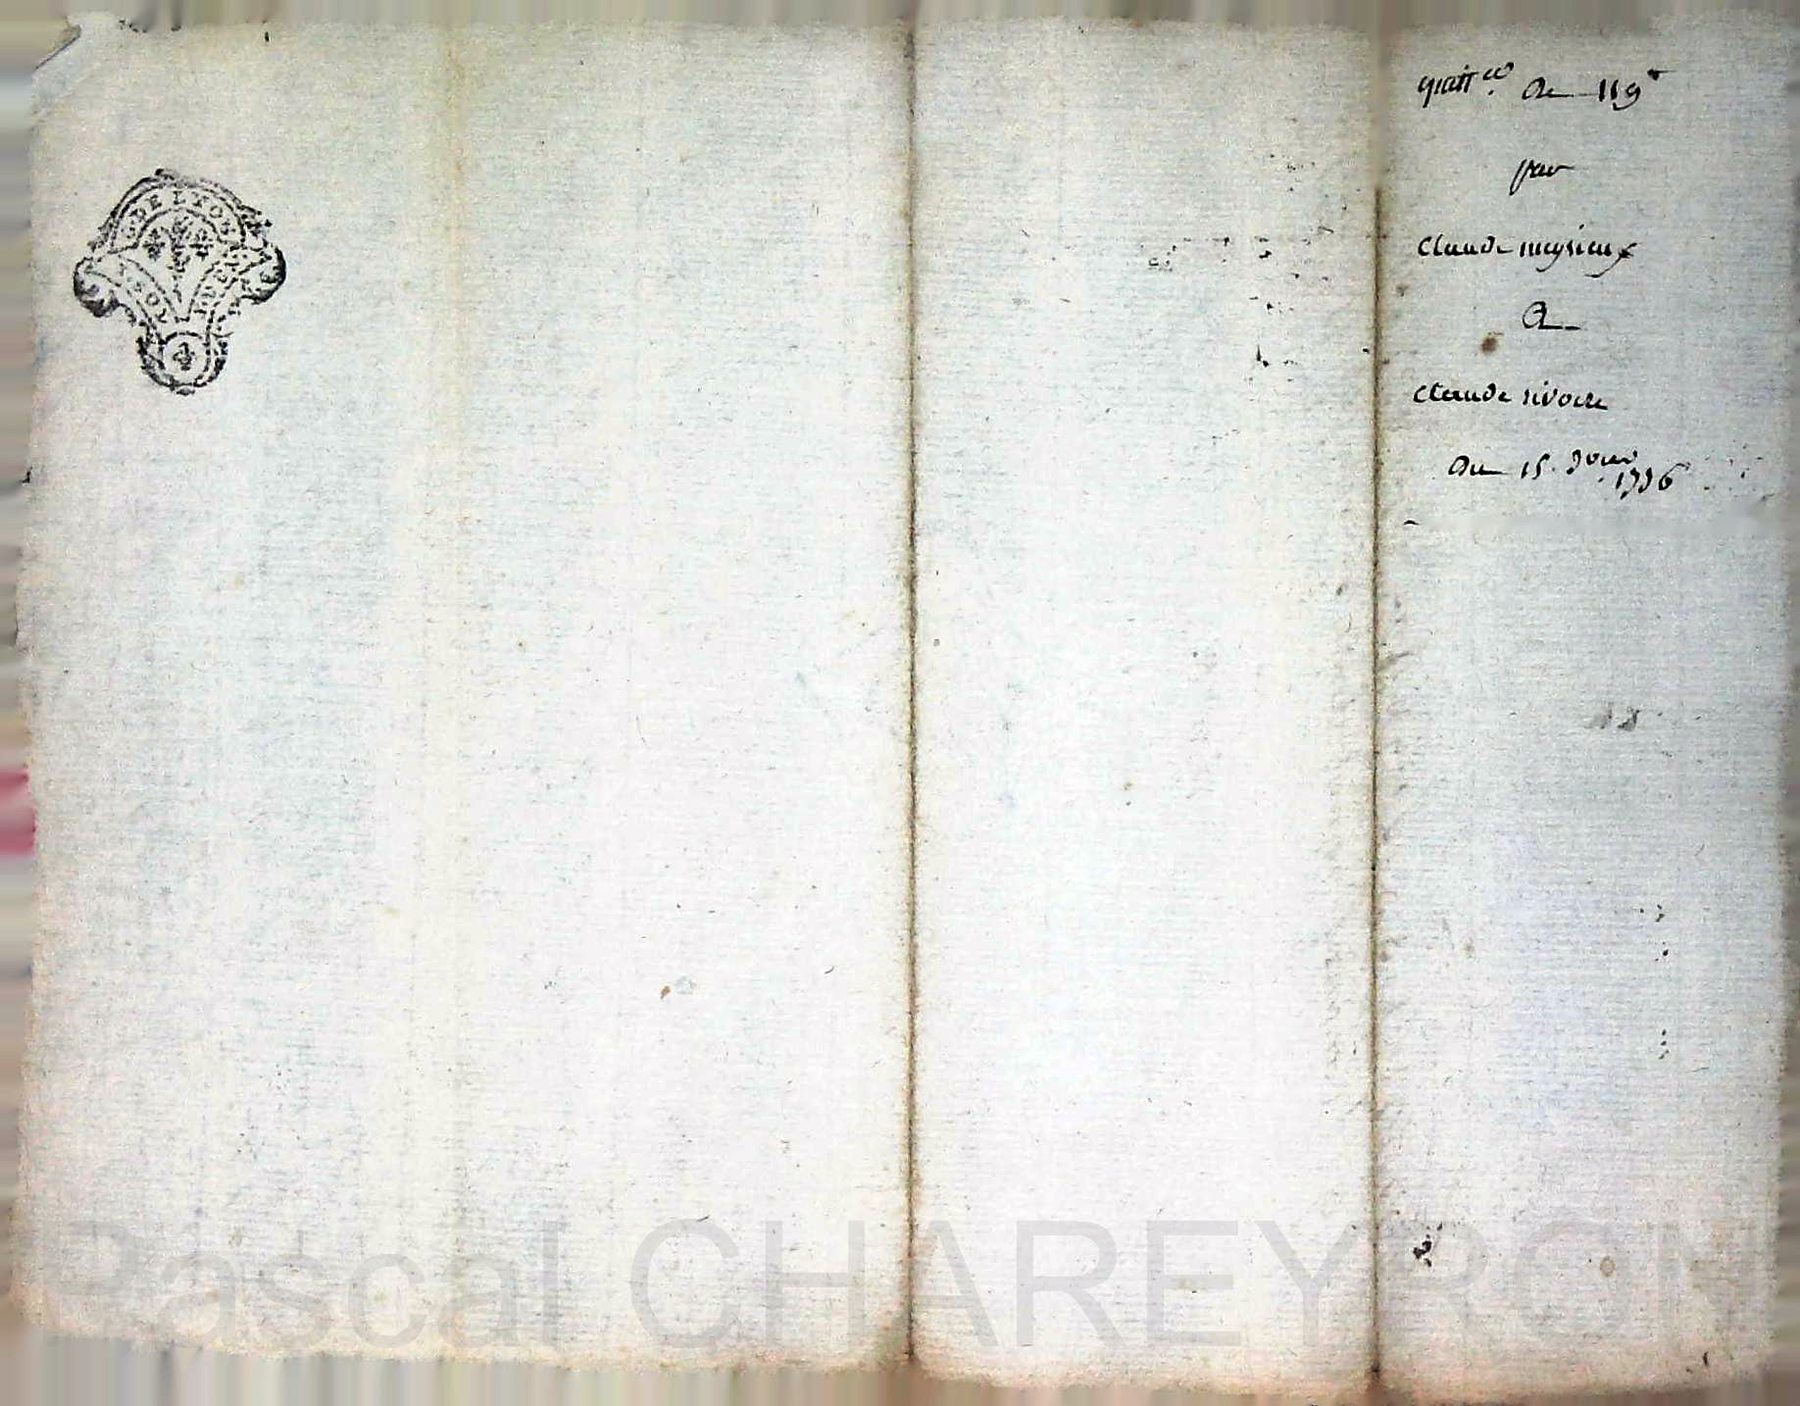 DE LYON
SOLS
quitt.ce de 119#
par
Claude meysieux
A
Claude rivoire
du 15.
1736
Pascal CHAREYRON